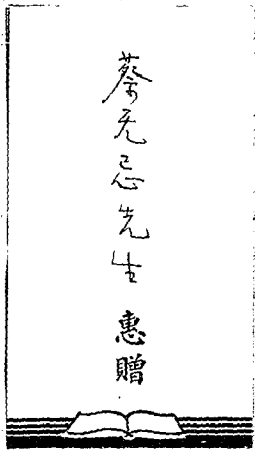 蔡无忌先生 惠贈